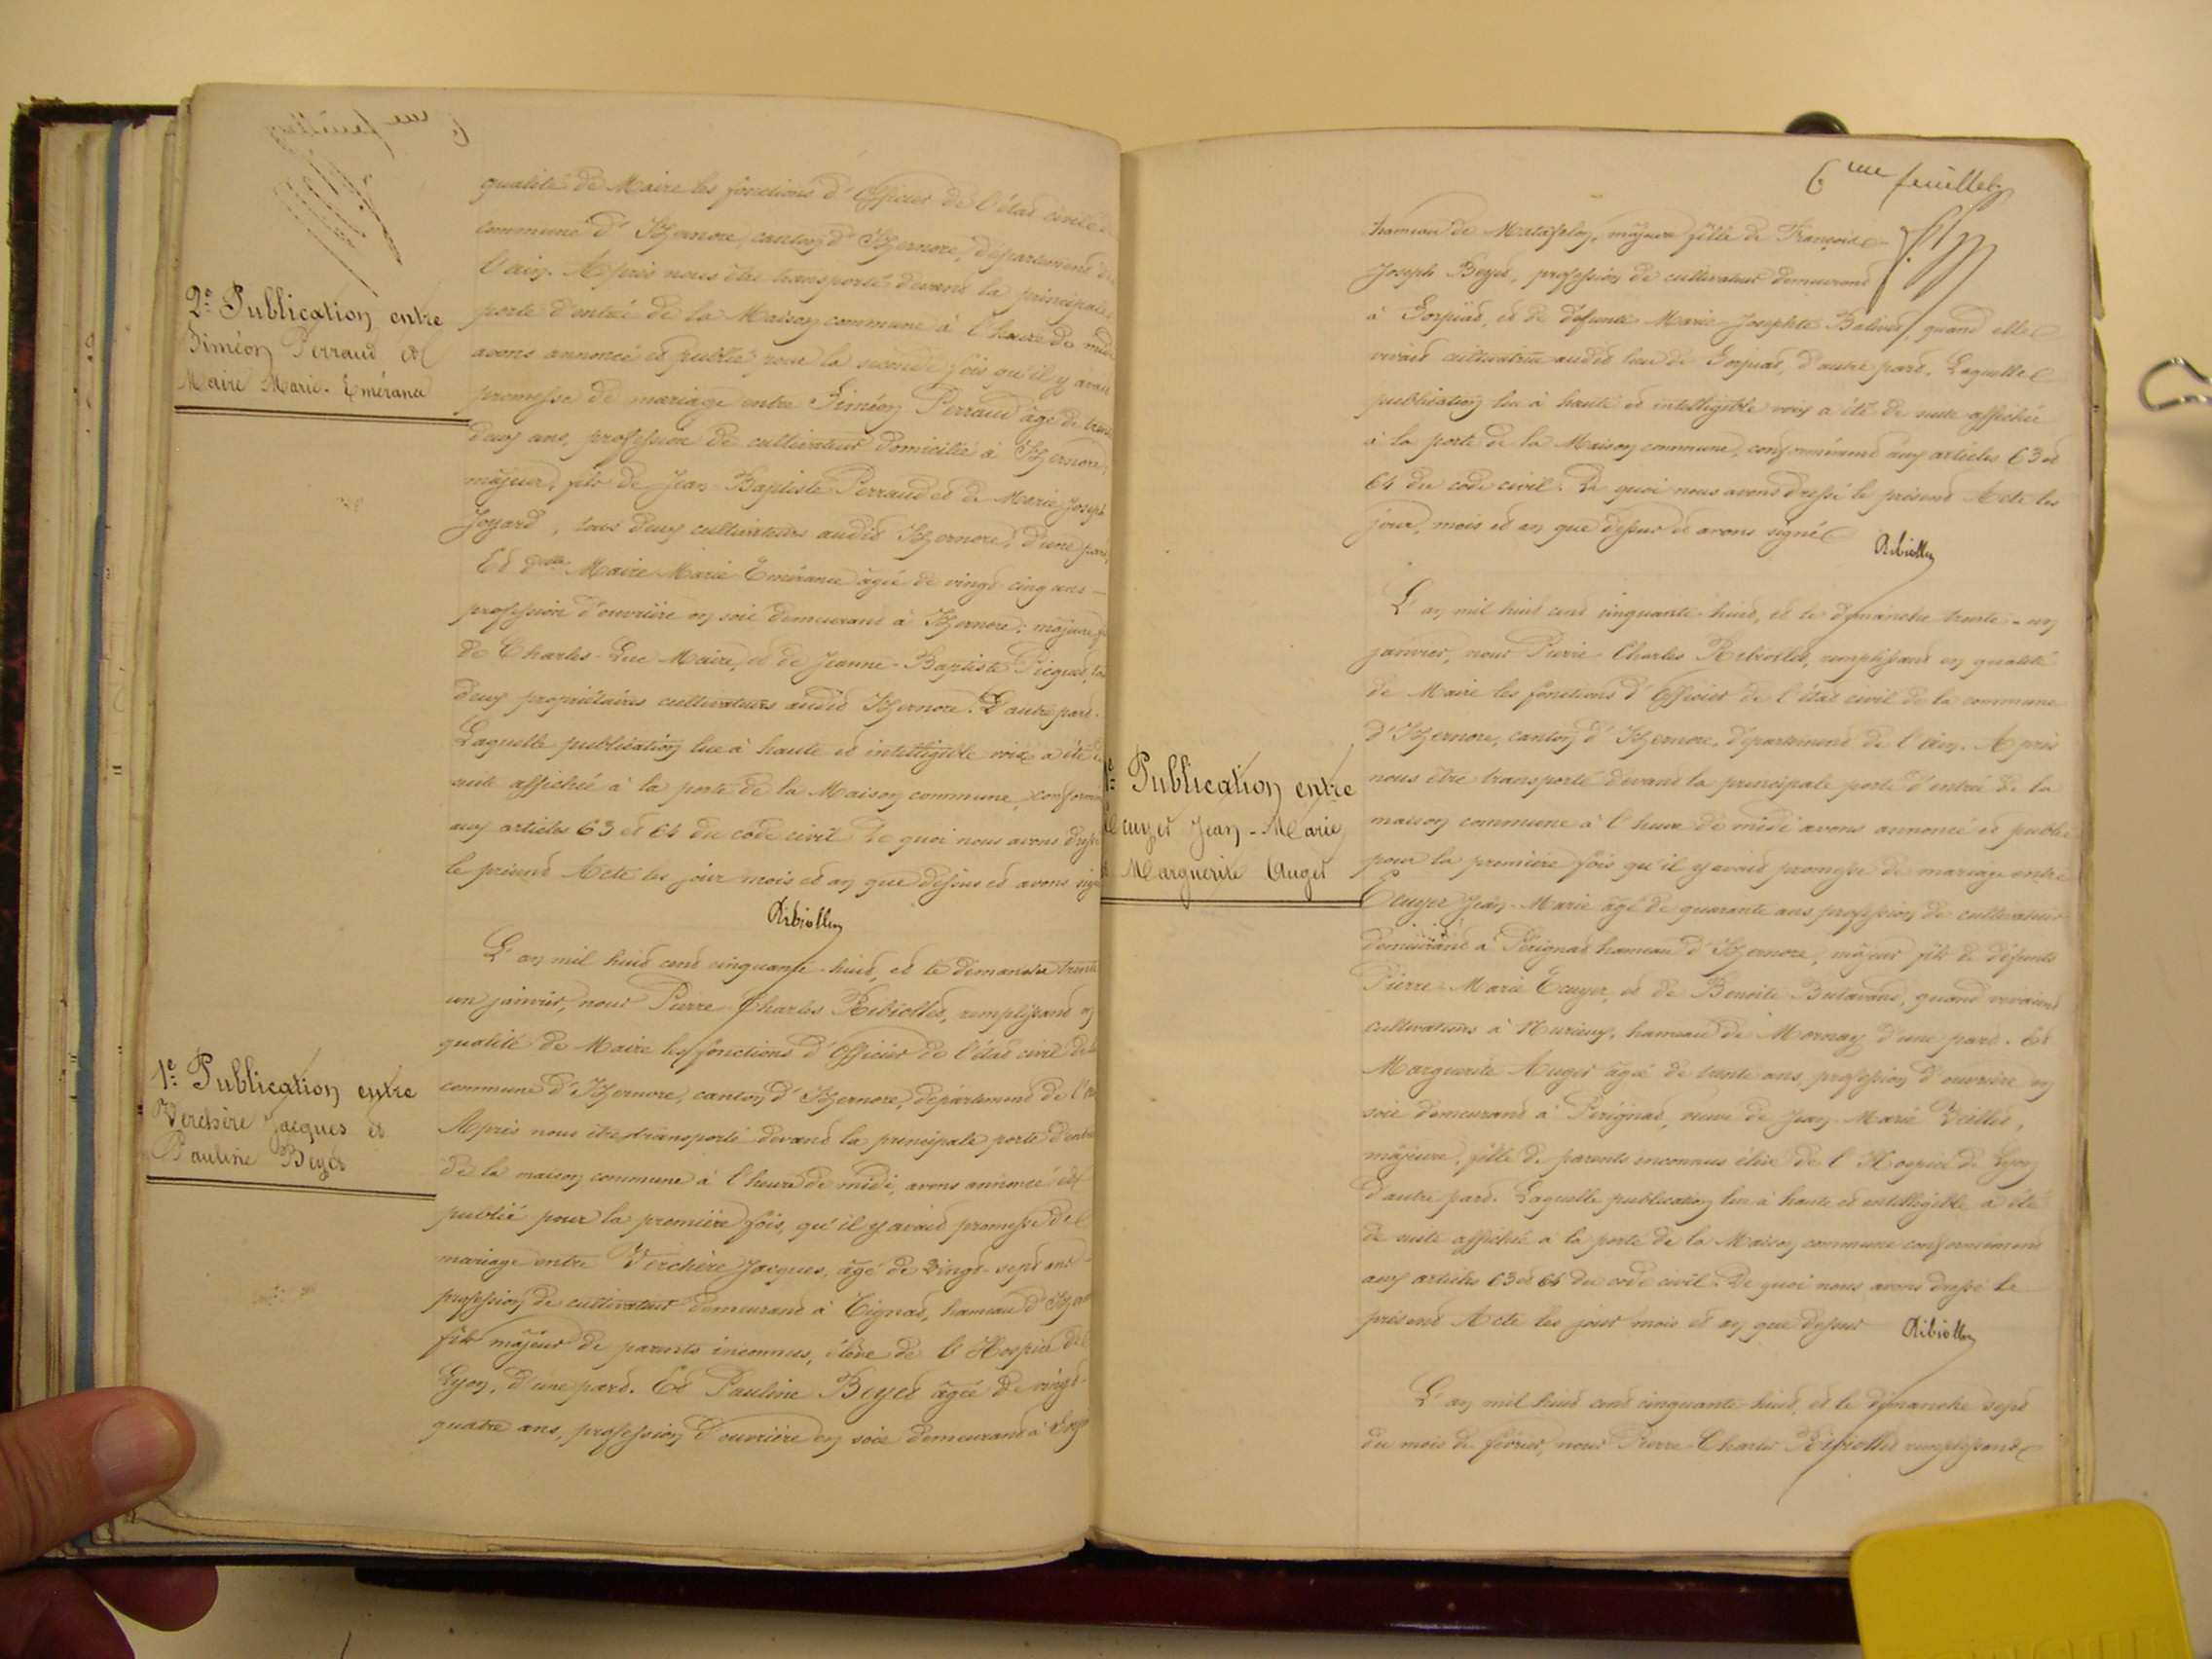 2e Publication entre
Siméon Perraud et
Maire Marie-Emérance
qualité de Maire les fonctions d'Officier de l'état civil de
commune d'Izernore, canton d'Izernore, département de
l'ain. Après nous être transporté devant la principale
porte d'entrée de la Maison commune à l'heure de midi
avons annoncé et publié pour la seconde fois qu'il y avait
promesse de mariage entre Siméon Perraud âgé de trente
deux ans, profession de cultivateur domicilié à Izernore,
majeur, fils de Jean-Baptiste Perraud et de Marie Joseph
Joyard, tous deux cultivateurs audit Izernore, d'une part,
Et dlle Maire Marie Emérance âgée de vingt cinq ans
profession d'ouvrière en soie demeurant à Izernore; majeure
de Charles-Luc Maire, et de Jeanne-Baptiste Picquet,
deux propriétaires cultivateurs audit Izernore. D'autre part.
Laquelle publication lue à haute et intelligible voix a été de
suite affichée à la porte de la Maison commune,
aux articles 63 et 64 du code civil. De quoi nous avons dressé
le présent Acte les jour mois et an que dessus et avons signé
Ribiollet
1e Publication entre
Verchère Jacques et
Pauline Beyet
L'an mil huit cent cinquante-huit, et le dimanche trente
un janvier, nous Pierre Charles Ribiollet, remplissant en
qualité de Maire les fonctions d'Officier de l'état civil de la
commune d'Izernore, canton d'Izernore, département de l'ain
Après nous être transporté devant la principale porte d'entrée
de la maison commune à l'heure de midi, avons annoncé et
publié pour la première fois, qu'il y avait promesse de
mariage entre Verchère Jacques, âgé de vingt-sept ans
profession de cultivateur demeurant à Tignat, hameau d'Izernore
fils majeur de parents inconnus, élève de l'Hospice de
Lyon, d'une part. Et Pauline Beyet âgée de vingt-
quatre ans, profession d'ouvrière en soie demeurant à
6me feuillet
hameau de Matafelon, majeure fille de François
Joseph Beyet, profession de cultivateur demeurant
à Gorpiat, et de défunte Marie Josephte Balivet, quand elle
vivait cultivatrice audit lieu de Gorpiat, d'autre part. Laquelle
publication lue à haute et intelligible voix a été de suite affichée
à la porte de la Maison commune, conformément aux articles 63 et
64 du code civil. De quoi nous avons dressé le présent Acte les
jour, mois et an que dessus et avons signé
Ribiollet
1e Publication entre
Ecuyer Jean-Marie
et Marguerite Auger
L'an mil huit cent cinquante-huit, et le dimanche trente-un
janvier, nous Pierre Charles Ribiollet, remplissant en qualité
de Maire les fonctions d'Officier de l'état civil de la commune
d'Izernore, canton d'Izernore, département de l'ain. Après
nous être transporté devant la principale porte d'entrée de la
maison commune à l'heure de midi avons annoncé et publié
pour la première fois qu'il y avait promesse de mariage entre
Ecuyer Jean-Marie âgé de quarante ans profession de cultivateur
demeurant à Pérignat hameau d'Izernore, majeur fils de défunts
Pierre-Marie Ecuyer, et de Benoite Butavand, quand vivaient
cultivateurs à Nurieux, hameau de Mornay d'une part. Et
Marguerite Auger âgée de trente ans, profession d'ouvrière en
soie demeurant à Pérignat, veuve de Jean Marie Veillet,
majeure, fille de parents inconnus élève de l'Hospice de Lyon
d'autre part. Laquelle publication lue à haute et intelligible a été
de suite affichée à la porte de la Maison commune conformément
aux articles 63 et 64 du code civil. De quoi nous avons dressé le
présent Acte les jour mois et an que dessus
Ribiollet
L'an mil huit cent cinquante-huit, et le dimanche sept
du mois de février, nous Pierre-Charles Ribiollet remplissant